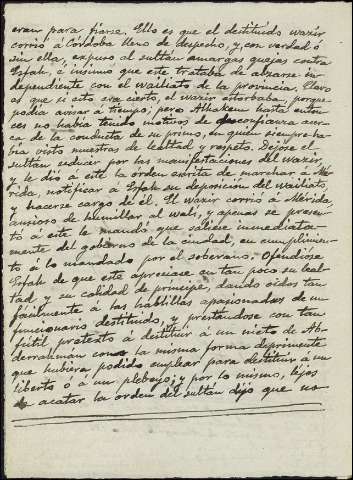 eran para fiarse. Ello es que el destituído wazir
corrió á Córdoba lleno de despecho, y, con verdad ó
sin ella, expuso al sultán amargas quejas contra
Esfah, é insinuó que este trataba de alzarse in-
dependiente con el wailiato de la provincia. Claro
es que si esto era cierto, el wazir estorbaba, porque
podía avisar á tiempo; pero Alhakem hasta enton-
ces no había tenido motivos de desconfianza acer-
ca de la conducta de su primo, en quién siempre ha-
bía visto muestras de lealtad y respeto. Dejóse el
sultán seducir por las manifestaciones del wazir,
y le dió á este la orden escrita de marchar á Mé-
rida, notificar á Esfah su deposición del wailiato,
y hacerse cargo de él. El wazir corrió á Mérida,
ansioso de humillar al walí, y apenas se presen-
tó á este le mandó que saliese inmediata-
mente del gobierno de la ciudad, en cumplimien-
to á lo mandado por el soberano. Ofendióse
Esfah de que este apreciase en tan poco su leal-
tad y su calidad de príncipe, dando oídos tan
fácilmente á las hablillas apasionadas de un
funcionario destituído, y prestándose con tan
fútil pretexto á destituir á un nieto de Ab-
derrahman con la misma forma deprimente
que hubiera podido emplear para destituir á un
liberto ó á un plebeyo; y por lo mismo, léjos
de acatar la orden del sultán dijo que no